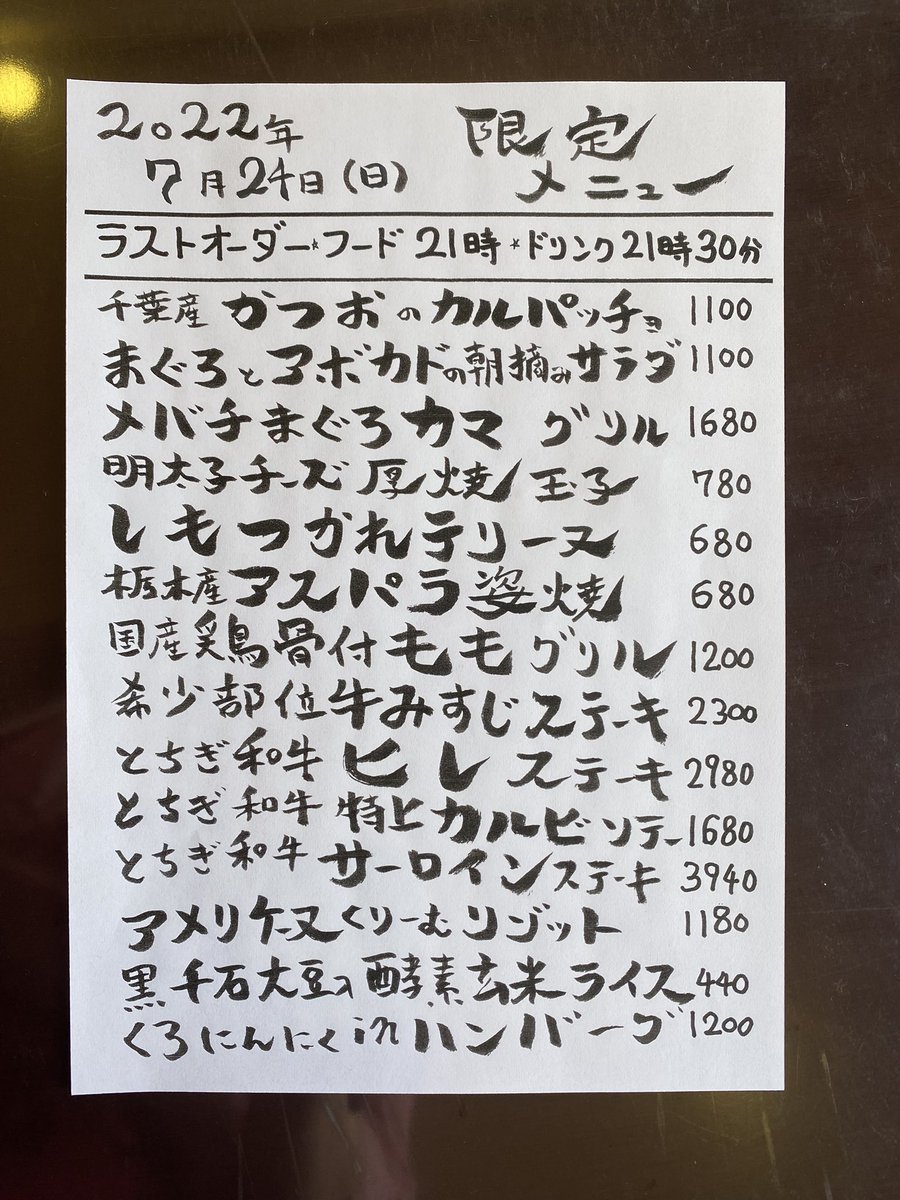 2022年 限定
7月24日(日) メニュー
ラストオーダー☆フード21時☆ドリンク21時30分
千葉産かつおのカルパッチョ 1100
まぐろとアボカドの朝摘みサラダ 1100
メバチまぐろカマ グリル 1680
明太子チーズ厚焼玉子 780
しもつかれテリーヌ 680
栃木産アスパラ姿焼 680
国産鶏骨付ももグリル 1200
希少部位牛みすじステーキ 2300
とちぎ和牛ヒレステーキ 2980
とちぎ和牛特上カルビソテー 1680
とちぎ和牛サーロインステーキ 3940
アメリケーヌくりーむリゾット 1180
黒千石大豆入酵素玄米ライス 440
くろにんにくinハンバーグ 1200